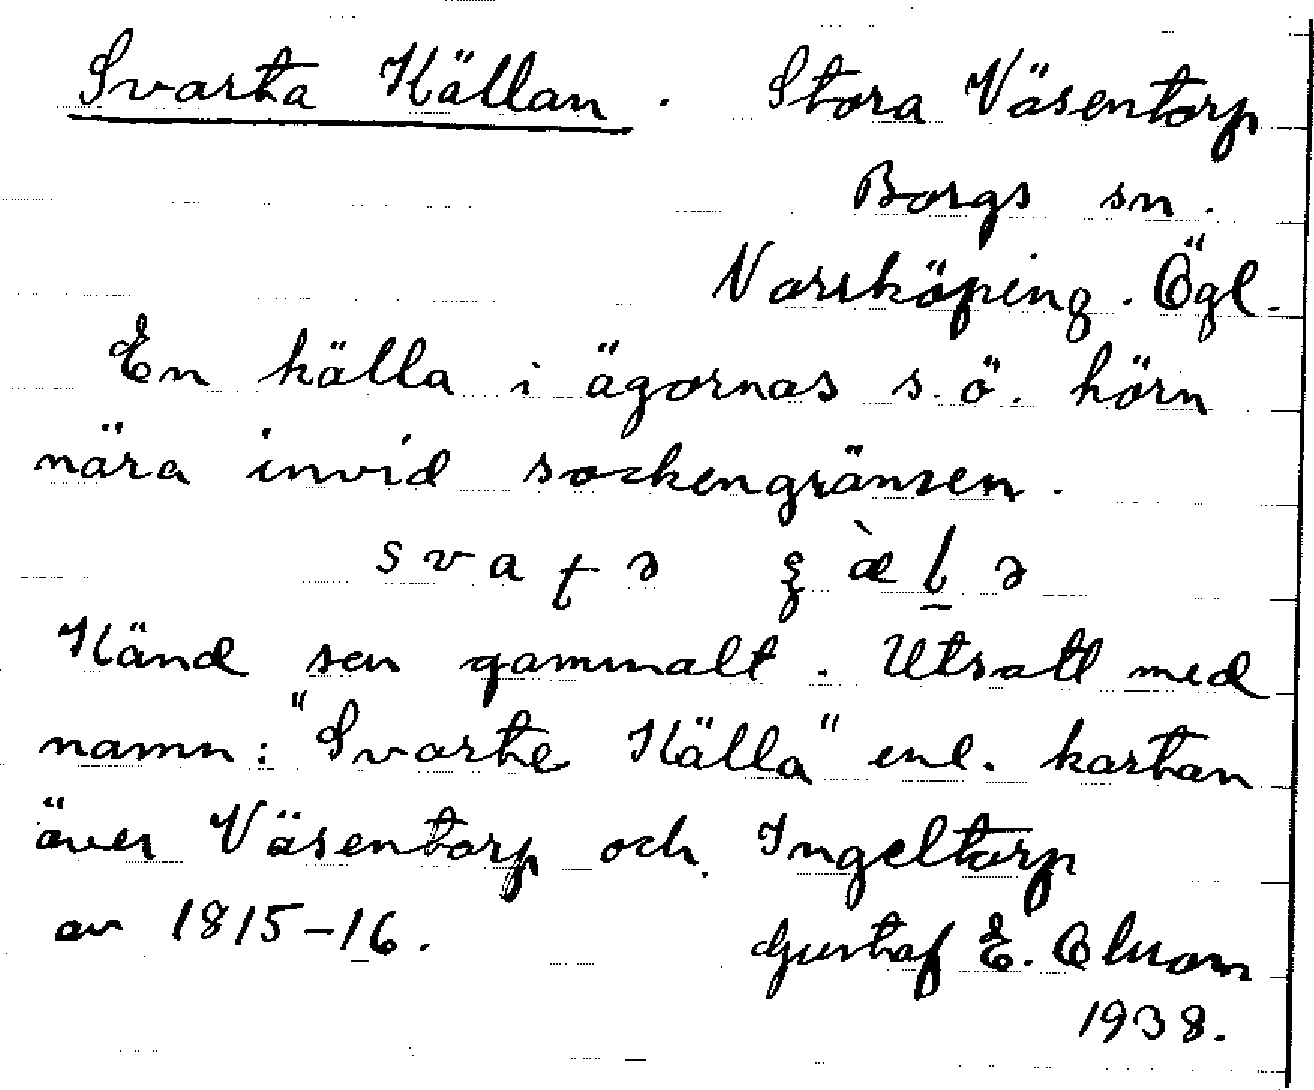 Svarta Källan. Stora Väsentorp
Borgs sn.
Norrköping. Ögl.
En källa i ägornas s.ö. hörn
nära invid sockengränsen.
Känd sen gammalt. Utsatt med
namn: "Svarte Källa" enl. kartan
över Väsentorp och Ingeltorp
av 1815-16. Gustaf E.
1938.